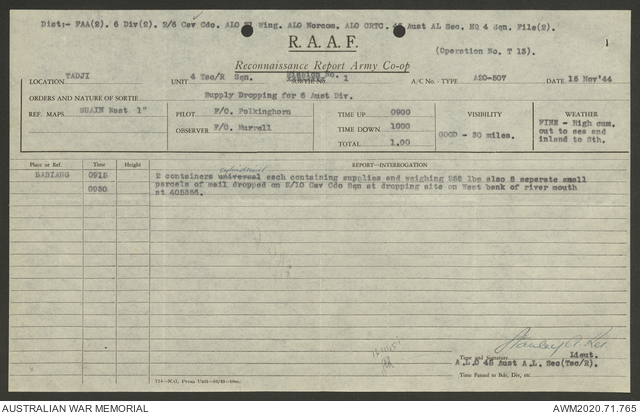 Dist:- FAA(2). 6 Div(2). 2/6 Cav Cdo. ALO Wing. ALO Norcom. ALO CRTC. 45 Aust AL Sec. HQ 4 Sqn. File(2).
1
R.A.A.F.
(Operation No. T 13).
Reconnaissance Report Army Co-op
LOCATION TADJI UNIT 4 Tac/R Sqn. Mission No. 1 A/C No. - TYPE A20-507 DATE 15 Nov'44
ORDERS AND NATURE OF SORTIE Supply Dropping for 6 Aust Div.
REF. MAPS SUAIN East 1" PILOT F/O. Polkinghorn TIME UP 0900 VISIBILITY WEATHER
OBSERVER F/O. Murrell TIME DOWN 1000 GOOD - 30 miles. FINE - High cum. out to sea and inland to Sth.
TOTAL 1.00
Place or Ref. Time Height REPORT—INTERROGATION
BABIANG 0915 2 containers universal each containing supplies and weighing 258 lbs also 8 separate small
0930 parcels of mail dropped on 2/10 Cav Cdo Sqn at dropping site on West bank of river mouth
at 405356.
Time and Signature Lieut.
A.L.O 45 Aust A.L. Sec(Tac/R).
Time Passed to Bde, Div, etc.
AUSTRALIAN WAR MEMORIAL AWM2020.71.765